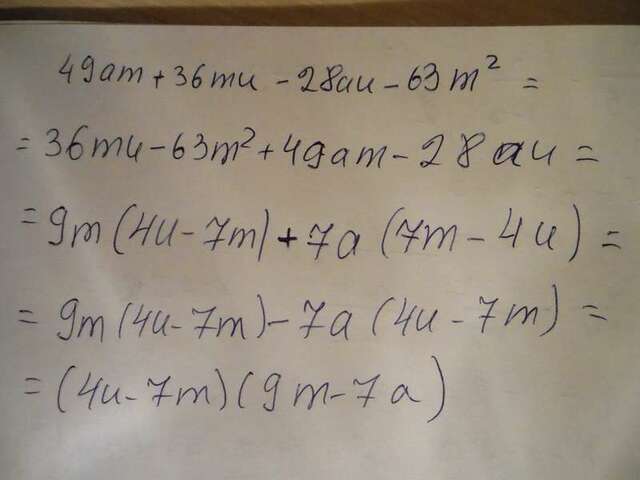 49am + 36mu - 28au - 63m² =
= 36mu - 63m² + 49am - 28au =
= 9m(4u - 7m) + 7a(7m - 4u) =
= 9m(4u - 7m) - 7a(4u - 7m) =
= (4u - 7m)(9m - 7a)